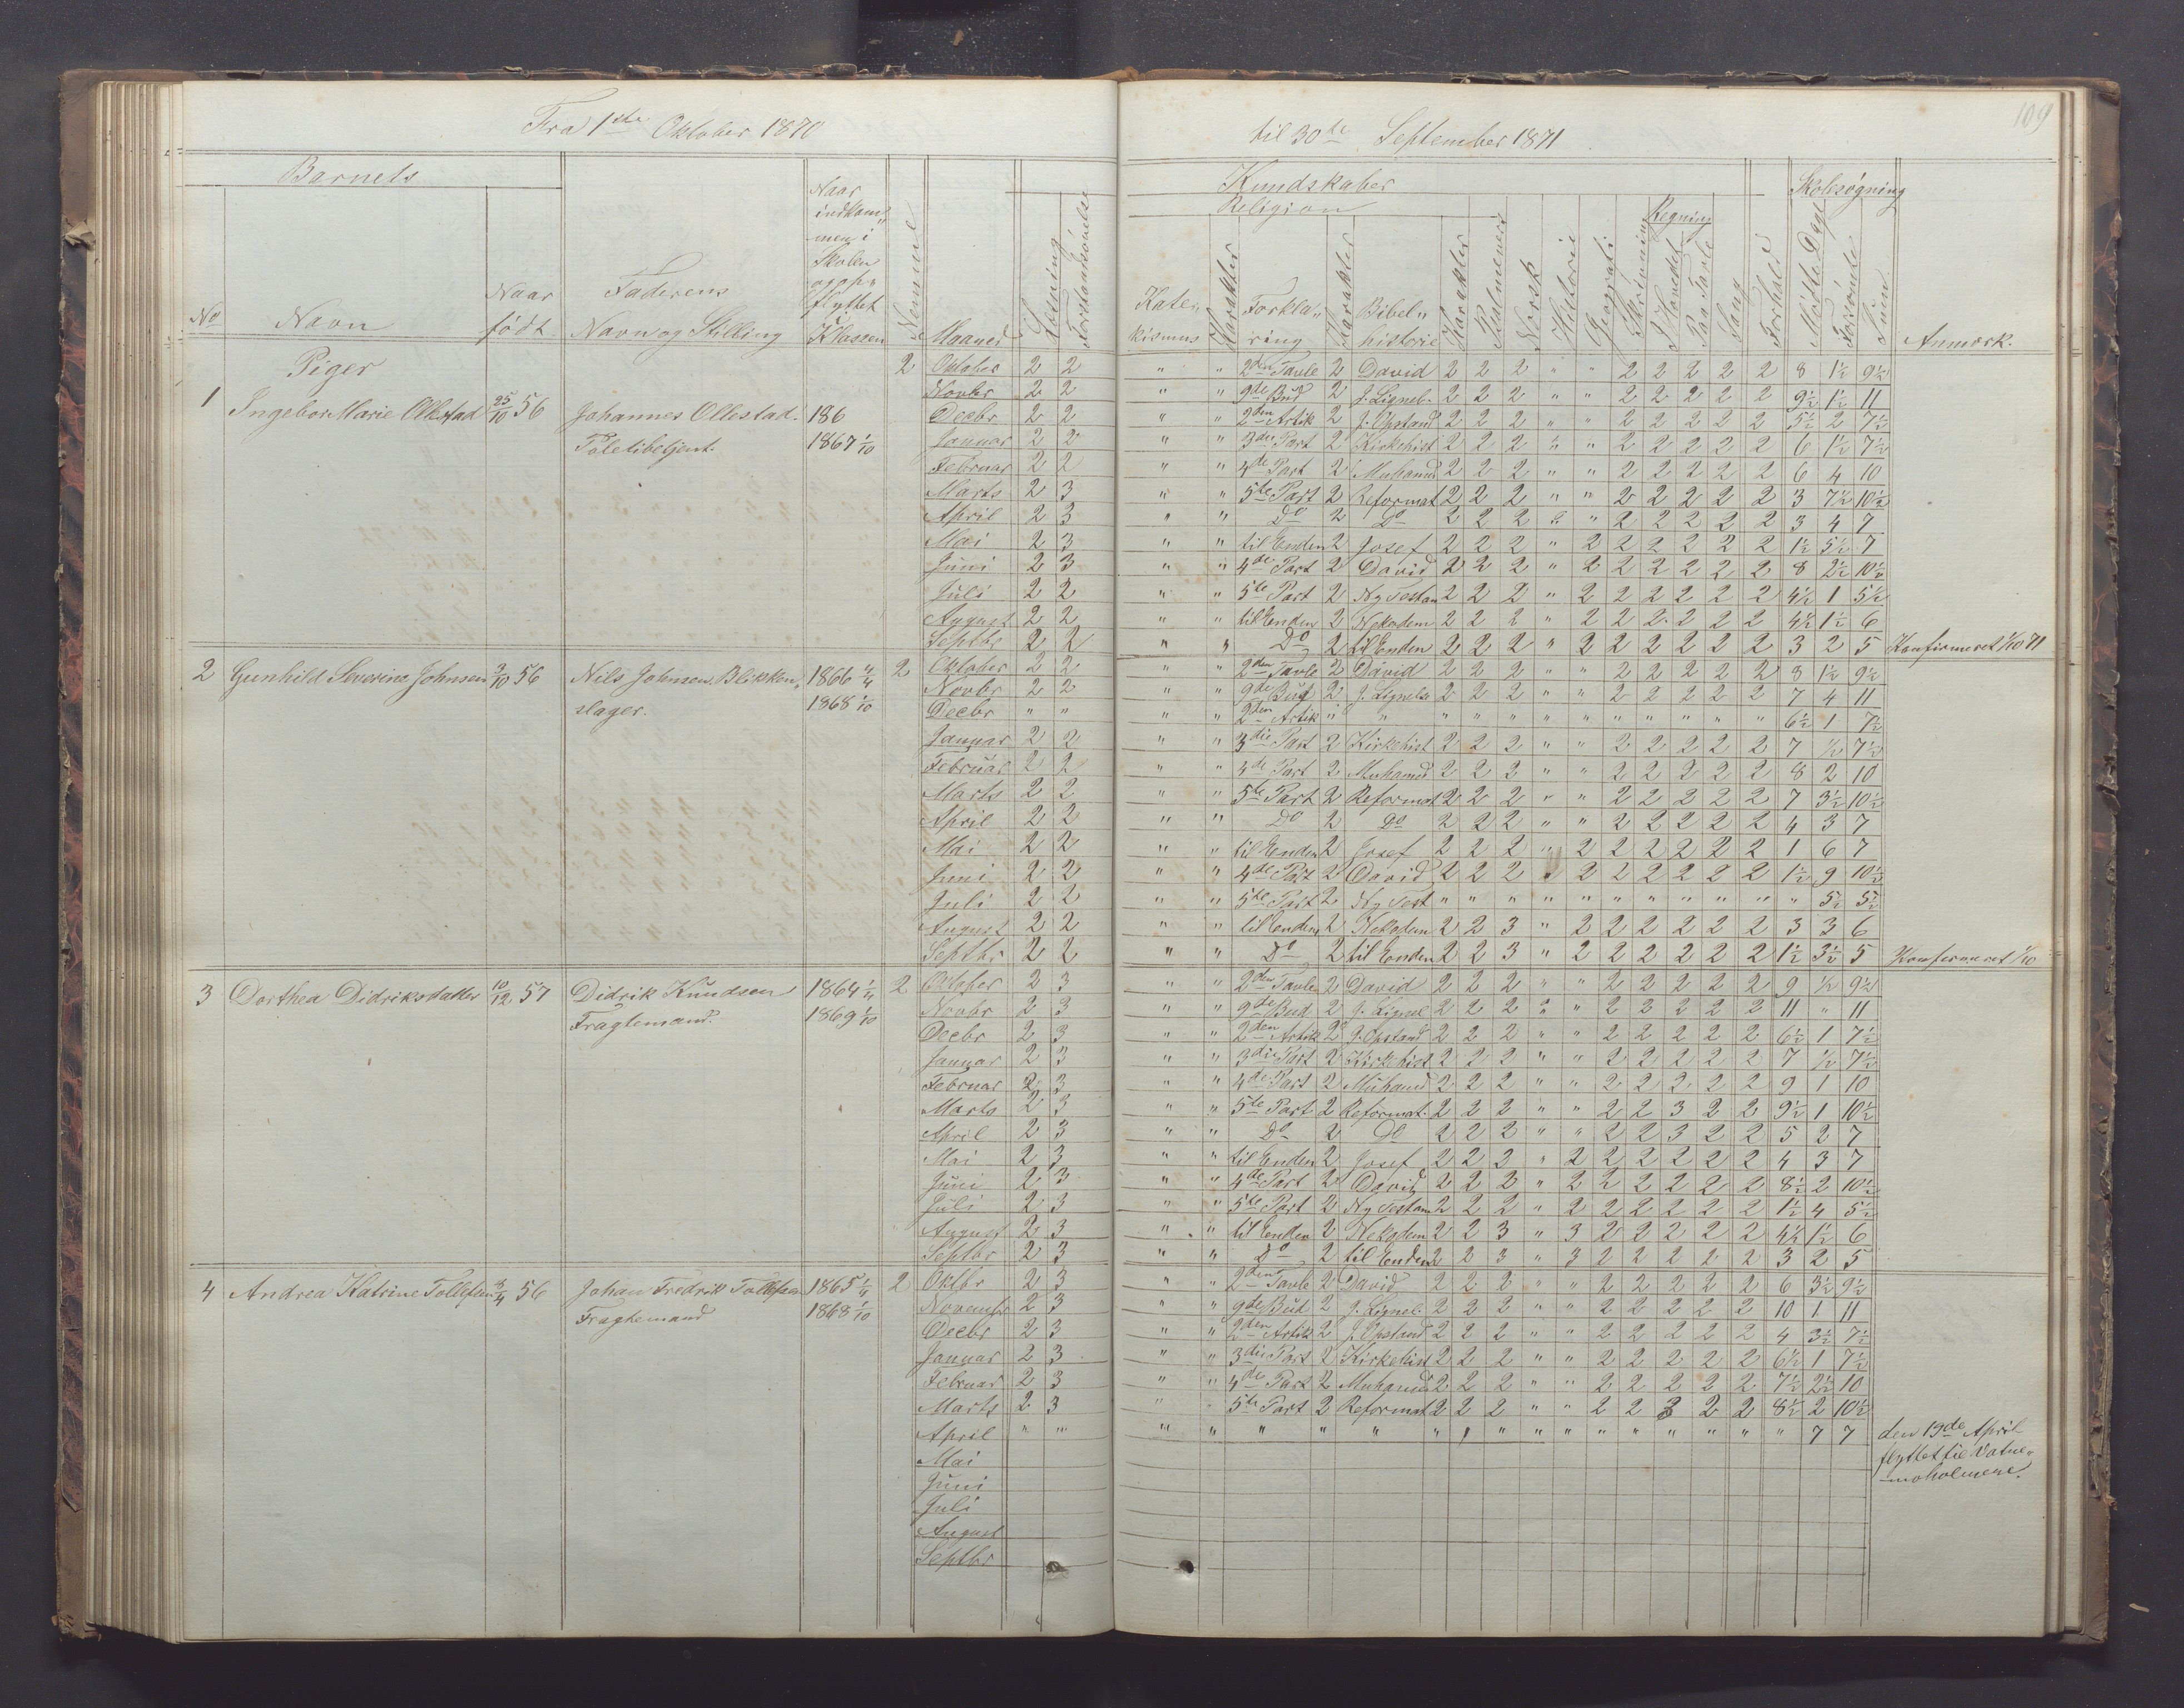 Fra 1ste Oktober 1870
til 30te September 1871
109
Barnets
No
Navn
Naar født
Faderens Navn og Stilling
Naar indkommen i Skolen og opflyttet i Klassen
Nemme
Maaned
Læsning
Forstandsøvelse
Kundskaber
Religion
Katekismus
Karakter
Forklaring
Karakter
Bibelhistorie
Karakter
Psalmevers
Norsk
Historie
Geografi
Skrivning
Regning
I Hovedet
Paa Tavle
Sang
Forhold
Skolesøgning
Mødte Dage
Forsømte
Sum
Anmærk.
Piger
1 Ingebor Marie Ollestad 25/10 56 Johannes Ollestad. Politibetjent. 186 1867 1/10 2
Oktober 2 2 " " 2den Tavle 2 David 2 2 2 " " 2 2 2 2 2 8 1½ 9½
Novbr 2 2 " " 9de Bud 2 J. Lignel. 2 2 2 " " 2 2 2 2 2 9½ 1½ 11
Decbr 2 2 " " 2den Artik 2 J. Opstand 2 2 2 " " 2 2 2 2 2 5½ 2 7½
Januar 2 2 " " 3die Part 2 Kirkehist 2 2 2 " " 2 2 2 2 2 6 1½ 7½
Februar 2 2 " " 4de Part 2 Muhamed 2 2 2 " " 2 2 2 2 2 6 4 10
Marts 2 3 " " 5te Part 2 Reformat 2 2 2 " " 2 2 2 2 2 3 7½ 10½
April 2 3 " " Do 2 Do 2 2 2 " " 2 2 2 2 2 3 4 7
Mai 2 3 " " til Enden 2 Josef 2 2 2 " 2 2 2 2 2 2 1½ 5½ 7
Juni 2 3 " " 4de Part 2 David 2 2 2 " 2 2 2 2 2 2 8 2½ 10½
Juli 2 2 " " 5te Part 2 Ny Testam 2 2 2 " 2 2 2 2 2 2 4½ 1 5½
August 2 2 " " til Enden 2 Nekodem 2 2 2 " 2 2 2 2 2 2 4½ 1½ 6
Septbr 2 2 " " Do 2 til Enden 2 2 2 " 2 2 2 2 2 2 3 2 5 Konfirmeret 1/10 71
2 Gunhild Severine Johnsen 9/10 56 Nils Johnsen. Blikkenslager. 1866 4/4 1868 1/10 2
Oktober 2 2 " " 2den Tavle 2 David 2 2 2 " " 2 2 2 2 2 8 1½ 9½
Novbr 2 2 " " 9de Bud 2 J. Lignels 2 2 2 " " 2 2 2 2 2 7 4 11
Decbr " " " " 2den Artik " " " " " " " " " " " " 6½ 1 7½
Januar 2 2 " " 3die Part 2 Kirkehist 2 2 2 " " 2 2 2 2 2 7 ½ 7½
Februar 2 2 " " 4de Part 2 Muhamed 2 2 2 " " 2 2 2 2 2 8 2 10
Marts 2 2 " " 5te Part 2 Reformat 2 2 2 " " 2 2 2 2 2 7 3½ 10½
April 2 2 " " Do 2 Do 2 2 2 " " 2 2 2 2 2 4 3 7
Mai 2 2 " " til Enden 2 Josef 2 2 2 " 2 2 2 2 2 2 1 6 7
Juni 2 2 " " 4de Part 2 David 2 2 2 " 2 2 2 2 2 2 1½ 9 10½
Juli 2 2 " " 5te Part 2 Ny Test " " " " " " " " " " " 5½ 5½
August 2 2 " " til Enden 2 Nekodem 2 2 3 " 2 2 2 2 2 2 3 3 6
Septbr 2 2 " " Do 2 til Enden 2 2 3 " 2 2 2 2 2 2 1½ 3½ 5 Konfirmeret 1/10
3 Dorthea Didriksdatter 10/12 57 Didrik Knudsen Fragtemand. 1864 1/4 1869 1/10 2
Oktober 2 3 " " 2den Tavle 2 David 2 2 2 " " 2 2 2 2 2 9 ½ 9½
Novbr 2 3 " " 9de Bud 2 J. Lignel 2 2 2 " " 2 2 2 2 2 11 " 11
Decbr 2 3 " " 2den Artik 2 J. Opstand 2 2 2 " " 2 2 2 2 2 6½ 1 7½
Januar 2 3 " " 3die Part 2 Kirkehist 2 2 2 " " 2 2 2 2 2 7 ½ 7½
Februar 2 3 " " 4de Part 2 Muhamed 2 2 2 " " 2 2 2 2 2 9 1 10
Marts 2 3 " " 5te Part 2 Reformat. 2 2 2 " " 2 2 3 2 2 9½ 1 10½
April 2 3 " " Do 2 Do 2 2 2 " " 2 2 3 2 2 5 2 7
Mai 2 3 " " til Enden 2 Josef 2 2 2 " 2 2 2 2 2 2 4 3 7
Juni 2 3 " " 4de Part 2 David 2 2 2 " 2 2 2 2 2 2 8½ 2 10½
Juli 2 3 " " 5te Part 2 Ny Testam 2 2 2 " 2 2 2 2 2 2 1½ 4 5½
August 2 3 " " til Enden 2 Nekodem 2 2 3 " 3 2 2 2 2 2 4½ 1½ 6
Septbr 2 3 " " Do 2 til Enden 2 2 3 " 3 2 2 2 2 2 3 2 5
4 Andrea Katrine Tollefsen 56 Johan Fredrik Tollefsen Fragtemand 1865 1/4 1868 1/10 2
Oktbr 2 3 " " 2den Tavle 2 David 2 2 2 " " 2 2 2 2 2 6 3½ 9½
Novembr 2 3 " " 9de Bud 2 J. Lignel. 2 2 2 " " 2 2 2 2 2 10 1 11
Decbr 2 3 " " 2den Artik 2 J. Opstand 2 2 2 " " 2 2 2 2 2 4 3½ 7½
Januar 2 3 " " 3die Part 2 Kirkehist 2 2 2 " " 2 2 2 2 2 6½ 1 7½
Februar 2 3 " " 4de Part 2 Muhamed 2 2 2 " " 2 2 2 2 2 7½ 2½ 10
Marts 2 3 " " 5te Part 2 Reformat 2 2 2 " " 2 2 3 2 2 8½ 2 10½
April " " " " " " " " " " " " " " " " " " 7 7 den 19de April
flyttet til Vatne-
moholmene.
Mai
Juni
Juli
August
Septbr